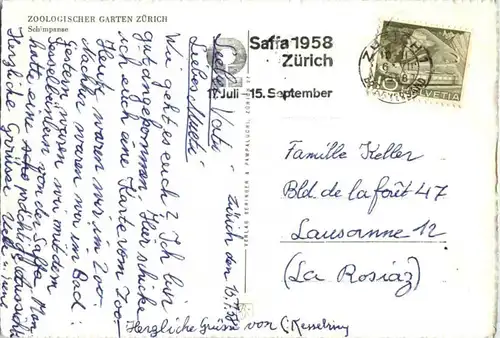 ZOOLOGISCHER GARTEN ZÜRICH
Schimpanse
Saffa 1958
Zürich
17. Juli - 15. September
HELVETIA
VERLAG BEHRINGER & PAMPALUCHI, ZÜRICH
Zürich den 15.7.58
Lieber Vati
Liebes Mutti
Wie geht es euch? Ich bin
gut angekommen. Hier schicke
ich euch eine Karte vom Zoo.
Heute waren wir im Zoo.
Nachher waren wir im Bad:
Gestern waren wir mit dem
Sesselbähnlein von der Saffa. Man
hatte eine prächtige Aussicht
Herzliche Grüsse
Herzliche Grüsse von C. Kesselring
Famille Keller
Bld. de la forêt 47
Lausanne 12
(La Rosiaz)